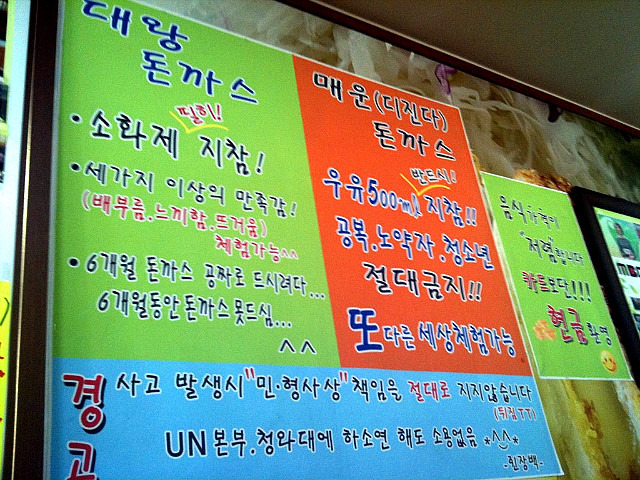 대왕
돈까스
필히!
• 소화제 지참!
• 세가지 이상의 만족감!
(배부름.느끼함.뜨거움)
체험가능^^
• 6개월 돈까스 공짜로 드시려다...
6개월동안 돈까스 못드심...
^^
매운(디진다)
돈까스
반드시!
우유500ml 지참!!
공복.노약자.청소년
절대금지!!
또 다른 세상체험가능
경고
사고 발생시 "민·형사상" 책임을 절대로 지지않습니다
(뒤짐TT)
UN본부.청와대에 하소연 해도 소용없음 *^^*
-쥔장백-
음식가격이
"저렴"합니다
카드보단!!!
현금 환영